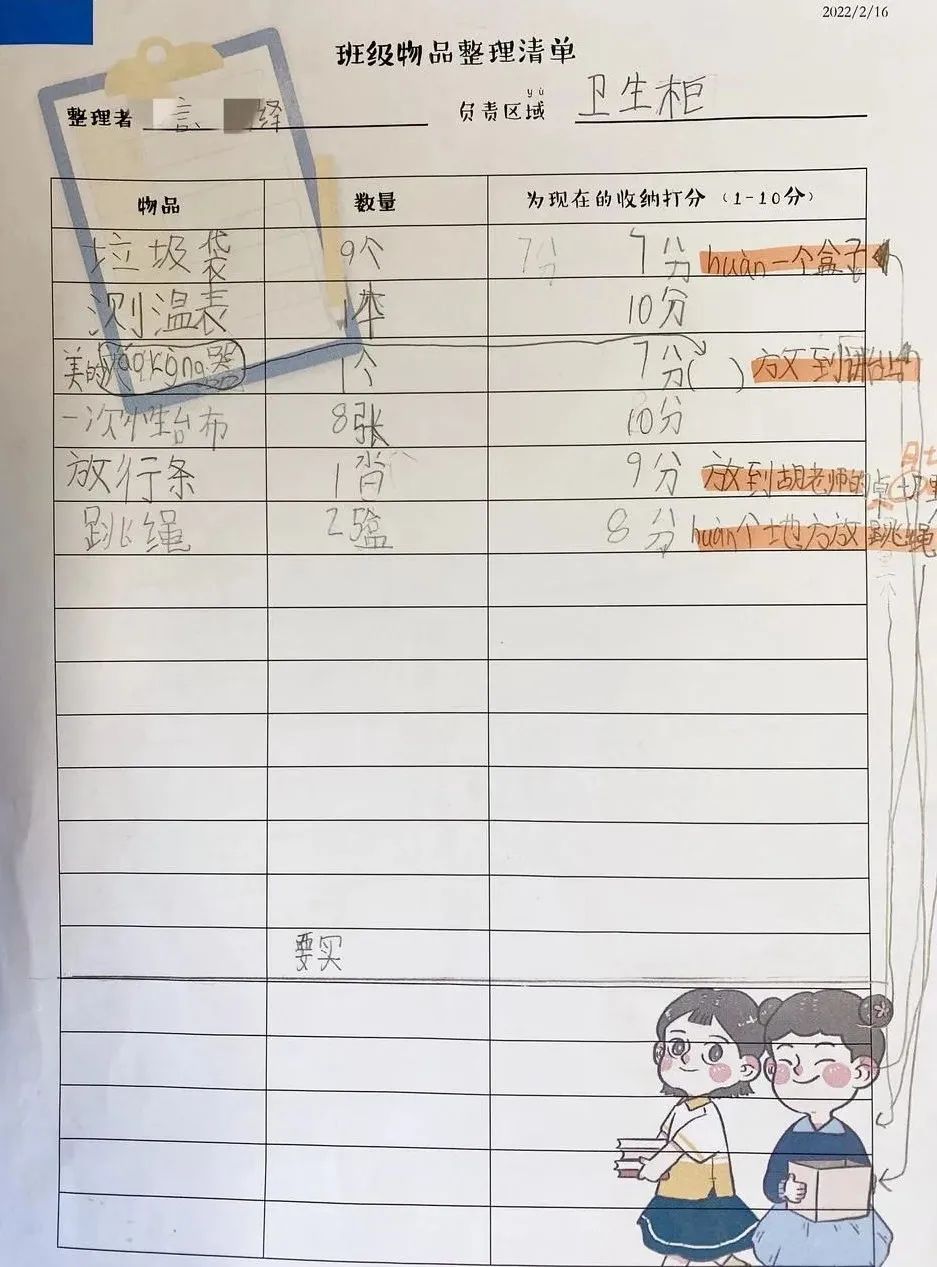 2022/2/16
班级物品整理清单
整理者 言、 绎 负责区域 yù 卫生柜
物品 数量 为现在的收纳打分（1-10分）
垃圾袋 9个 7分 7分 huàn一个盒子
测温表 1本 10分
美的 器 1个 7分( ) 放到讲台上
一次性台布 8张 10分
放行条 1 9分 放到胡老师的桌
跳绳 25 8分 huàn个地方放跳绳
要买